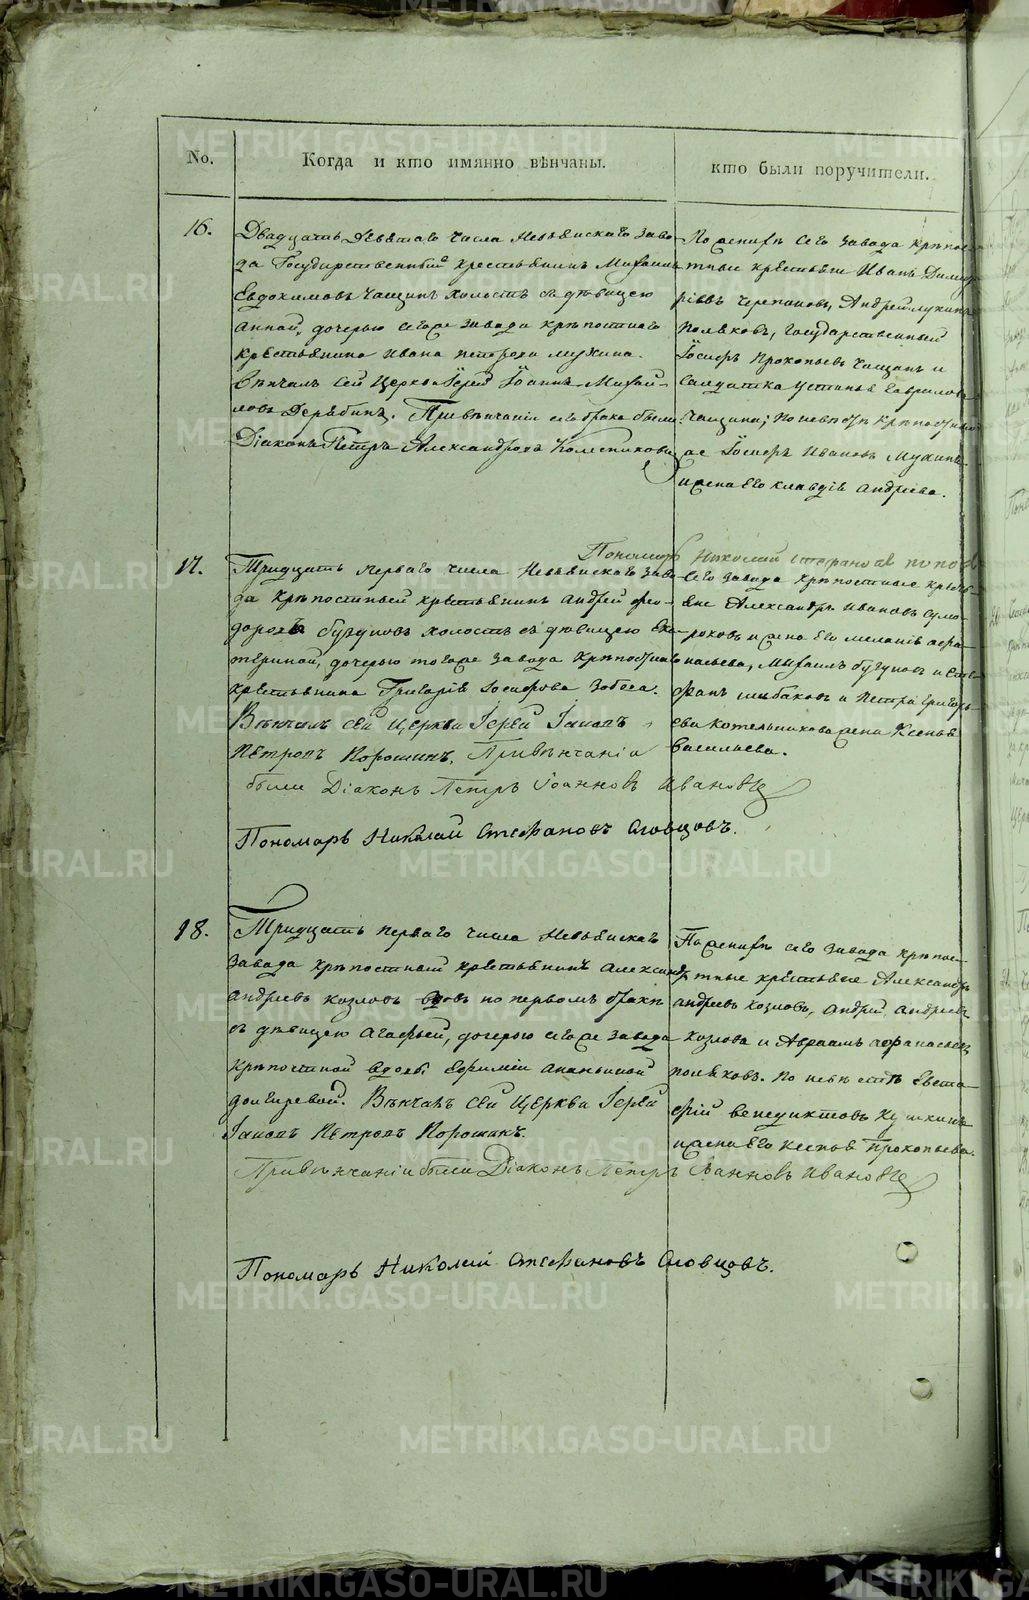 No.
Когда и кто имянно вѣнчаны.
кто были поручители.
16.
Двадцать девятаго числа Невьянскаго заво-
да Государственный крестьянинъ Михаилъ
Евдокимовъ Чащинъ холостъ съ дѣвицею
Анной, дочерью сегоже завода крѣпостнаго
крестьянина Ивана Петрова Мухина.
Вѣнчалъ сей церкви Іерей Іоаннъ Михай-
ловъ Дерябинъ. При вѣнчаніи сего брака были
Діаконъ Петръ Александровъ Колесниковъ
По женихѣ сего завода крѣпос-
тные крестьяне Иванъ Дмит-
ріевъ Черепановъ, Андрей Лукинъ
Поляковъ, Государственный
Іосифъ Прокопьевъ Чащинъ и
солдатка Устинья Гаврилова
Чащина; по невѣстѣ крѣпостный
же Іосифъ Ивановъ Мухинъ
и жена его Клавдія Андреева.
Пономарь Николай Стефановъ Попов
17.
Тридцать перваго числа Невьянскаго заво-
да крѣпостный крестьянинъ Андрей Фео-
доровъ Бугуновъ холостъ съ дѣвицею Ека-
териной, дочерью тогоже завода крѣпостнаго
крестьянина Григорія Іосифова
Вѣнчалъ сей церкви Іерей Іаковъ
Петровъ Порошинъ. При вѣнчаніи
были Діаконъ Петръ Іоанновъ Ивановъ
Пономарь Николай Стефановъ Словцовъ.
сего завода крѣпостные крестья-
яне Александръ Ивановъ
и жена его Меланія Афа-
насьева, Михаилъ Бугуновъ и Сте-
фанъ и Петра Григорь-
ева Котельникова жена Ксенья
Васильева.
18.
Тридцать перваго числа Невьянскаго
завода крѣпостный крестьянинъ Александръ
Андреевъ Козловъ вдовъ по первомъ бракѣ
съ дѣвицею Агафьей, дочерью сегоже завода
крѣпостной вдовы Ефиміи Ананьиной
Вѣнчалъ сей церкви Іерей
Іаковъ Петровъ Порошинъ.
При вѣнчаніи были Діаконъ Петръ Іоанновъ Ивановъ
Пономарь Николай Стефановъ Словцовъ.
По женихѣ сего завода крѣпос-
тные крестьяне Александръ
Андреевъ Козловъ, Андрей Андреевъ
Козловъ и Авраамъ Афанасьевъ
Поляковъ. По невѣстѣ Евста-
фій Венедиктовъ Кушкинъ
и жена его Ксенья Прокопьева.
METRIKI.GASO-URAL.RU